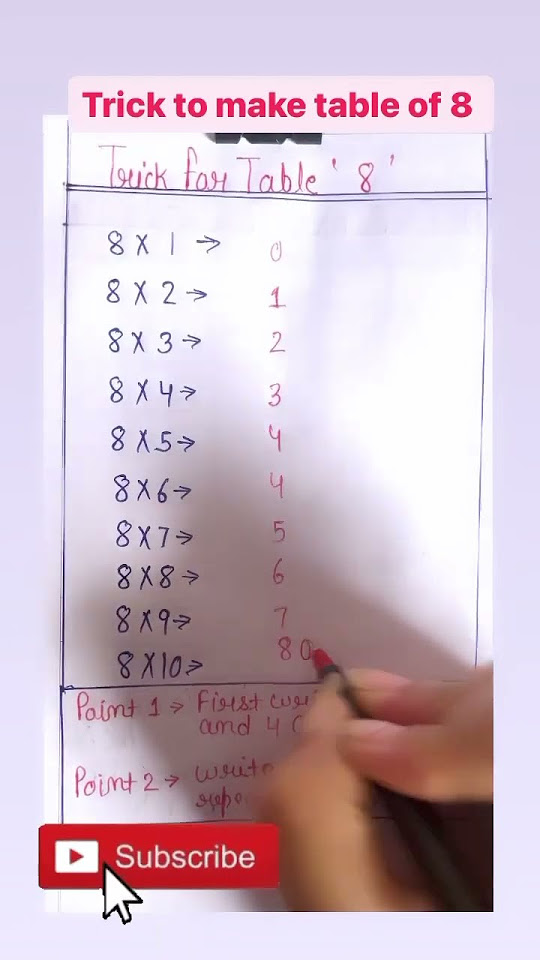 Trick to make table of 8
Trick for Table '8'
8 X 1 → 0
8 X 2 → 1
8 X 3 → 2
8 X 4 → 3
8 X 5 → 4
8 X 6 → 4
8 X 7 → 5
8 X 8 → 6
8 X 9 → 7
8 X 10 → 80
Point 1 → First
and 4
Point 2 →
Subscribe